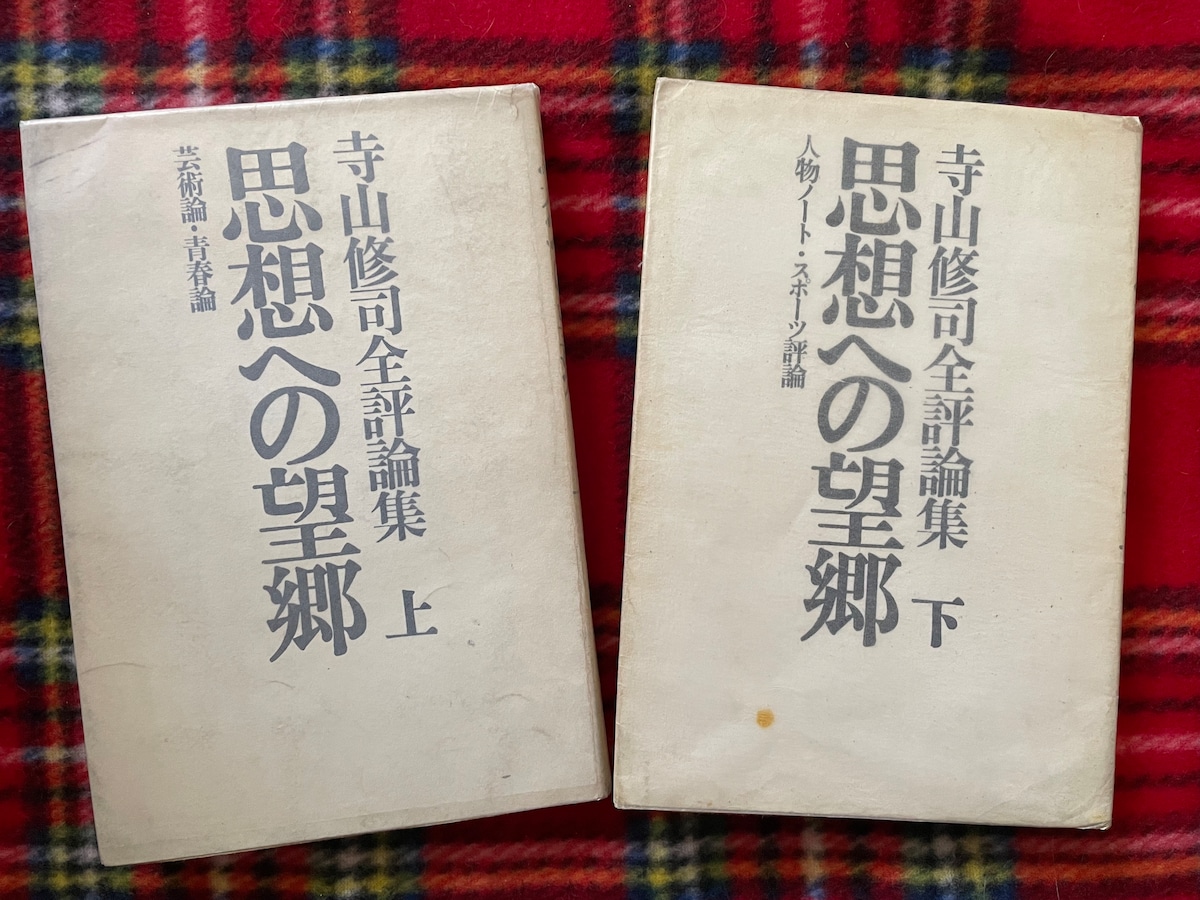 寺山修司全評論集 上
思想への望郷
芸術論・青春論
寺山修司全評論集 下
思想への望郷
人物ノート・スポーツ評論